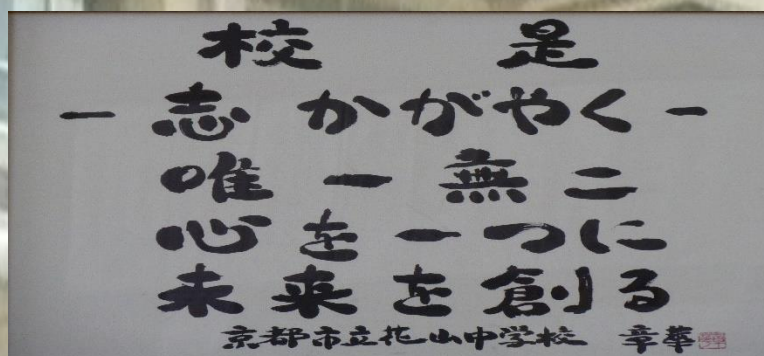 校是
－志 かがやく－
唯一無二
心を一つに
未来を創る
京都市立花山中学校 章華